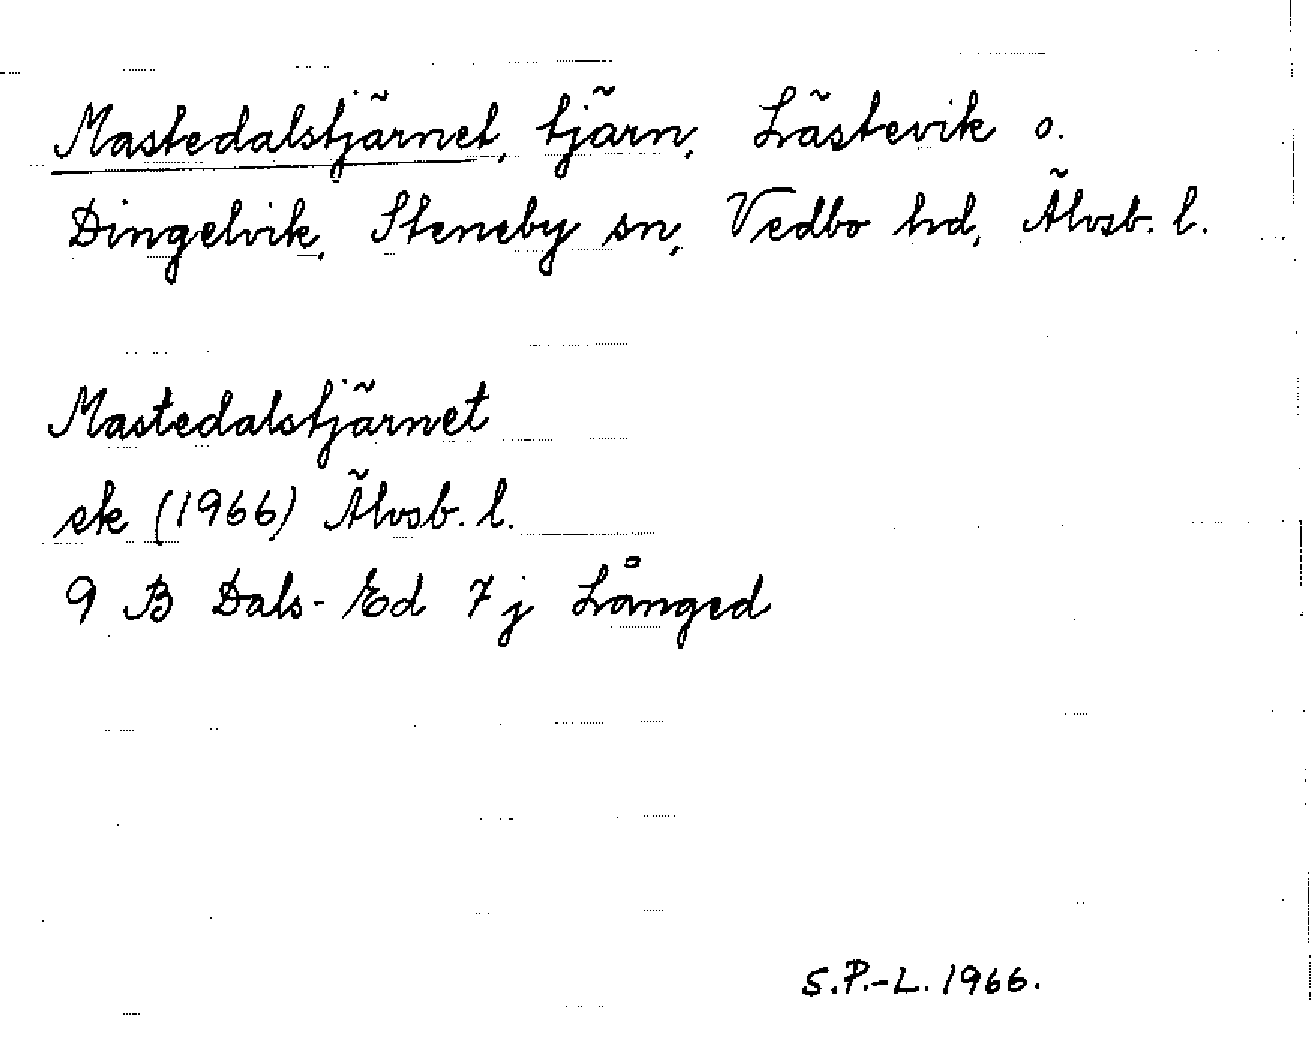 Mastedalstjärnet, tjärn, Lästevik o.
Dingelvik, Steneby sn, Vedbo hd, Älvsb. l.
Mastedalstjärnet
ek (1966) Älvsb. l.
9 B Dals-Ed 7 j Långed
S.P.-L. 1966.